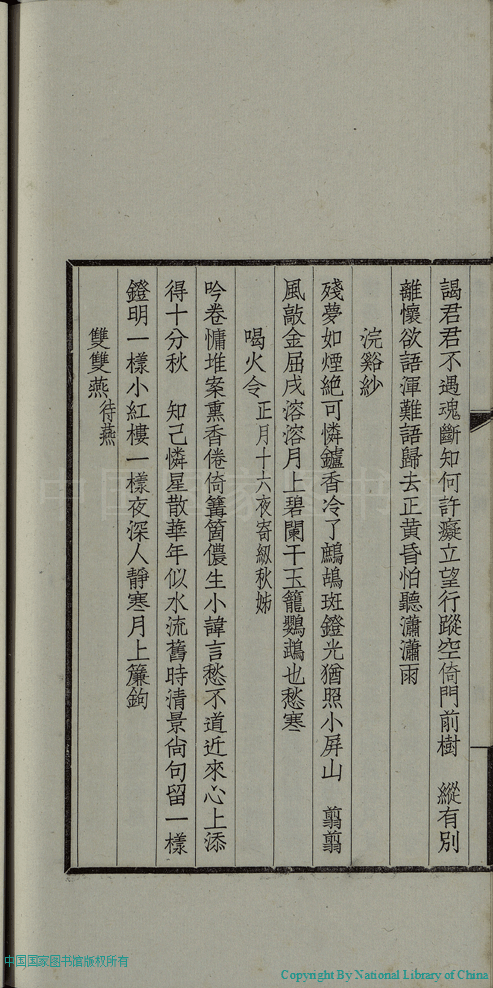 謁君君不遇魂斷知何許癡立望行蹤空倚門前樹　縱有別
離懷欲語渾難語歸去正黄昏怕聽瀟瀟雨
浣谿紗
殘夢如煙絶可憐鑪香冷了鷓鴣斑鐙光猶照小屏山　翦翦
風敲金屈戌溶溶月上碧闌干玉籠鸚鵡也愁寒
喝火令 正月十六夜寄紉秋姊
吟卷慵堆案熏香倦倚篝箇儂生小諱言愁不道近來心上添
得十分秋　知己憐星散華年似水流舊時清景尙句留一樣
鐙明一樣小紅樓一樣夜深人靜寒月上簾鉤
雙雙燕 待燕
中国国家图书馆
中国国家图书馆版权所有
Copyright By National Library of China